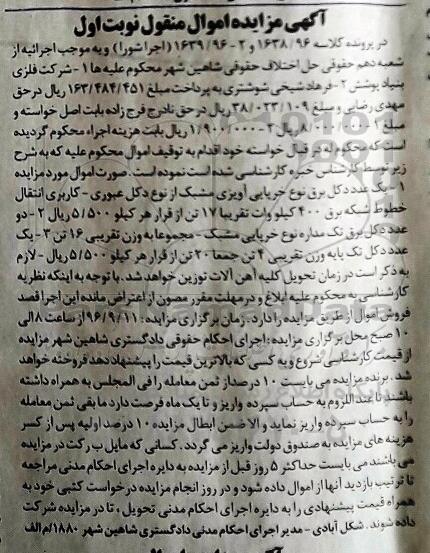 آگهی مزایده اموال منقول نوبت اول
در پرونده کلاسه ۱۶۳۸/۹۶ و ۲ - ۱۶۳۹/۹۶ (اجرا شورا) و به موجب اجرائیه از
شعبه دهم حقوقی حل اختلاف حقوقی شاهین شهر محکوم علیه ها ۱- شرکت فلزی
بنیاد پوشش ۲- فرهاد شیخی شوشتری به پرداخت مبلغ ۱۶۳/۴۸۴/۴۵۱ ریال در حق
مهدی رضایی و مبلغ ۳۸/۰۲۳/۱۰۹ ریال در حق نادرج فرج زاده بابت اصل خواسته و
مبلغ ۸/۰۰۰/۰۰۰ ریال ۳- ۱/۹۰۰/۰۰۰ ریال بابت هزینه اجراء محکوم گردیده
است که محکوم له در قبال خواسته خود اقدام به توقیف اموال محکوم علیه که به شرح
زیر توسط کارشناس خبره کارشناسی شده است نموده است. صورت اموال مورد مزایده
۱- یک عدد دکل برق نوع خرپایی آویزی مشبک از نوع دکل عبوری - کاربری انتقال
خطوط شبکه برق ۴۰۰ کیلو وات تقریبا ۱۷ تن از قرار هر کیلو ۵/۵۰۰ ریال ۲- دو
عدد دکل برق تک مداره نوع خرپایی مشبک - مجموعا به وزن تقریبی ۱۶ تن ۳- یک
عدد دکل تک پایه وزن تقریبی ۴ تن جمعا ۲۰ تن از قرار هر کیلو ۵/۵۰۰ ریال - لازم
به ذکر است در زمان تحویل کلیه آهن آلات توزین خواهد شد. با توجه به اینکه نظریه
کارشناسی به محکوم علیه ابلاغ و در مهلت مقرر مصون از اعتراض مانده این اجرا قصد
فروش اموال از طریق مزایده را دارد. زمان برگزاری مزایده: ۹۶/۹/۱۱ از ساعت ۸ الی
۱۰ صبح محل برگزاری مزایده: اجرای احکام حقوقی دادگستری شاهین شهر مزایده
از قیمت کارشناسی شروع و به کسی که بالاترین قیمت را پیشنهاد دهد فروخته خواهد
شد. برنده مزایده می بایست ۱۰ درصد از ثمن معامله را فی المجلس به همراه داشته
باشند تا عند اللزوم به حساب سپرده واریز و تا یک ماه فرصت دارد ما بقی ثمن معامله
را به حساب سپرده واریز نماید و الا ضمن ابطال مزایده ۱۰ درصد اولیه پس از کسر
هزینه های مزایده به صندوق دولت واریز می گردد. کسانی که مایل به شرکت در مزایده
می باشند می بایست حداکثر ۵ روز قبل از مزایده به دایره اجرای احکام مدنی مراجعه
تا ترتیب بازدید آنها از اموال داده شود و در روز انجام مزایده درخواست کتبی خود به
همراه قیمت پیشنهادی را به دایره اجرای احکام مدنی تحویل، تا در مزایده شرکت
داده شوند. شکل آبادی - مدیر اجرای احکام مدنی دادگستری شاهین شهر ۱۸۸۰/م الف